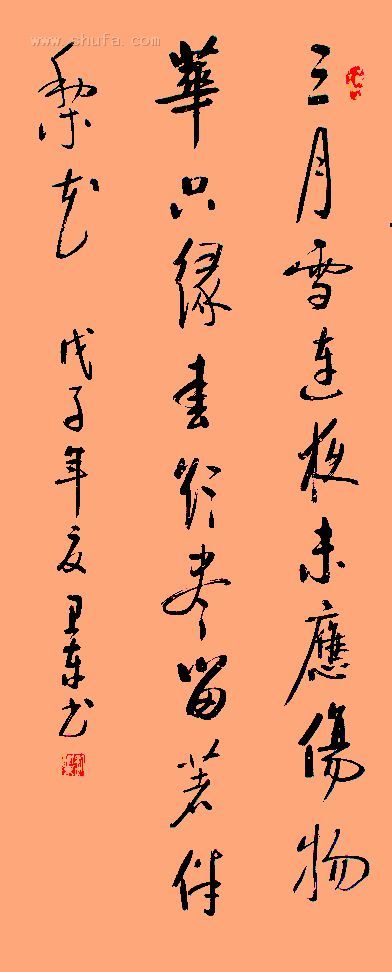 www.shufa.com
三月雪連夜未應傷物
華只緣春欲盡留著伴
梨花
戊子年夏卫東书